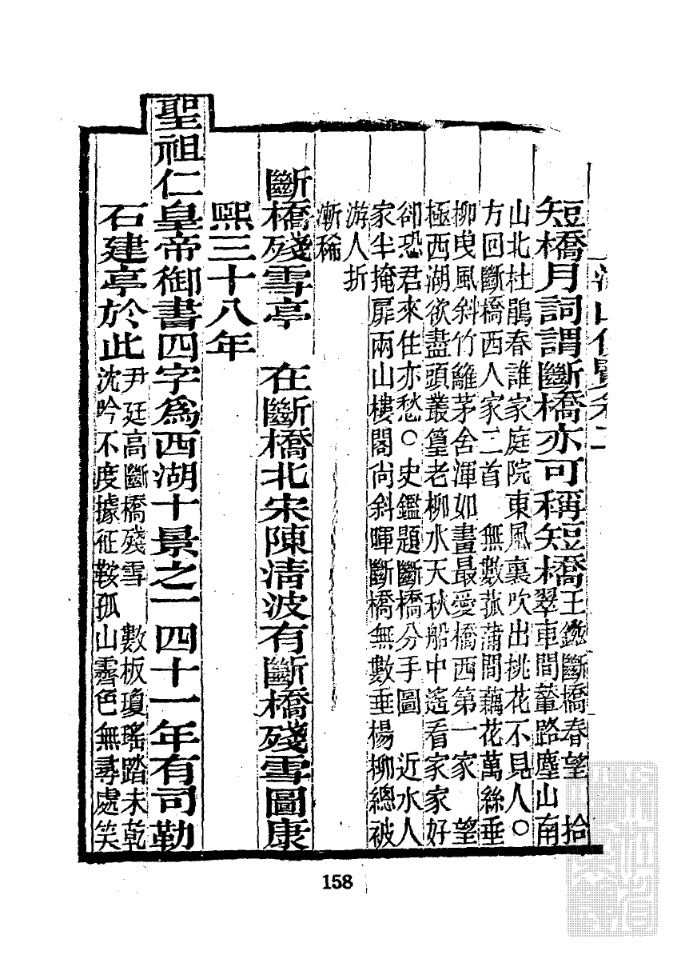 山便覽卷二
短橋月詞謂斷橋亦可稱短橋王鎡斷橋春望　拾
翠車間輦路塵山南
山北杜鵑春誰家庭院東風裏吹出桃花不見人○
方回斷橋西人家二首　無數菰蒲間藕花萬絲垂
柳曳風斜竹籬茅舍渾如畫最愛橋西第一家　望
極西湖欲盡頭叢篁老柳水天秋船中遙看家家好
卻恐君來住亦愁○史鑑題斷橋分手圖　近水人
家半掩扉兩山樓閣尚斜暉斷橋無數垂楊柳總被
游人折
漸稀
斷橋殘雪亭　在斷橋北宋陳清波有斷橋殘雪圖康
熙三十八年
聖祖仁皇帝御書四字為西湖十景之一四十一年有司勒
石建亭於此尹廷高斷橋殘雪　數板瓊瑤踏未乾
沈吟不度據征鞍孤山霽色無尋處笑
158